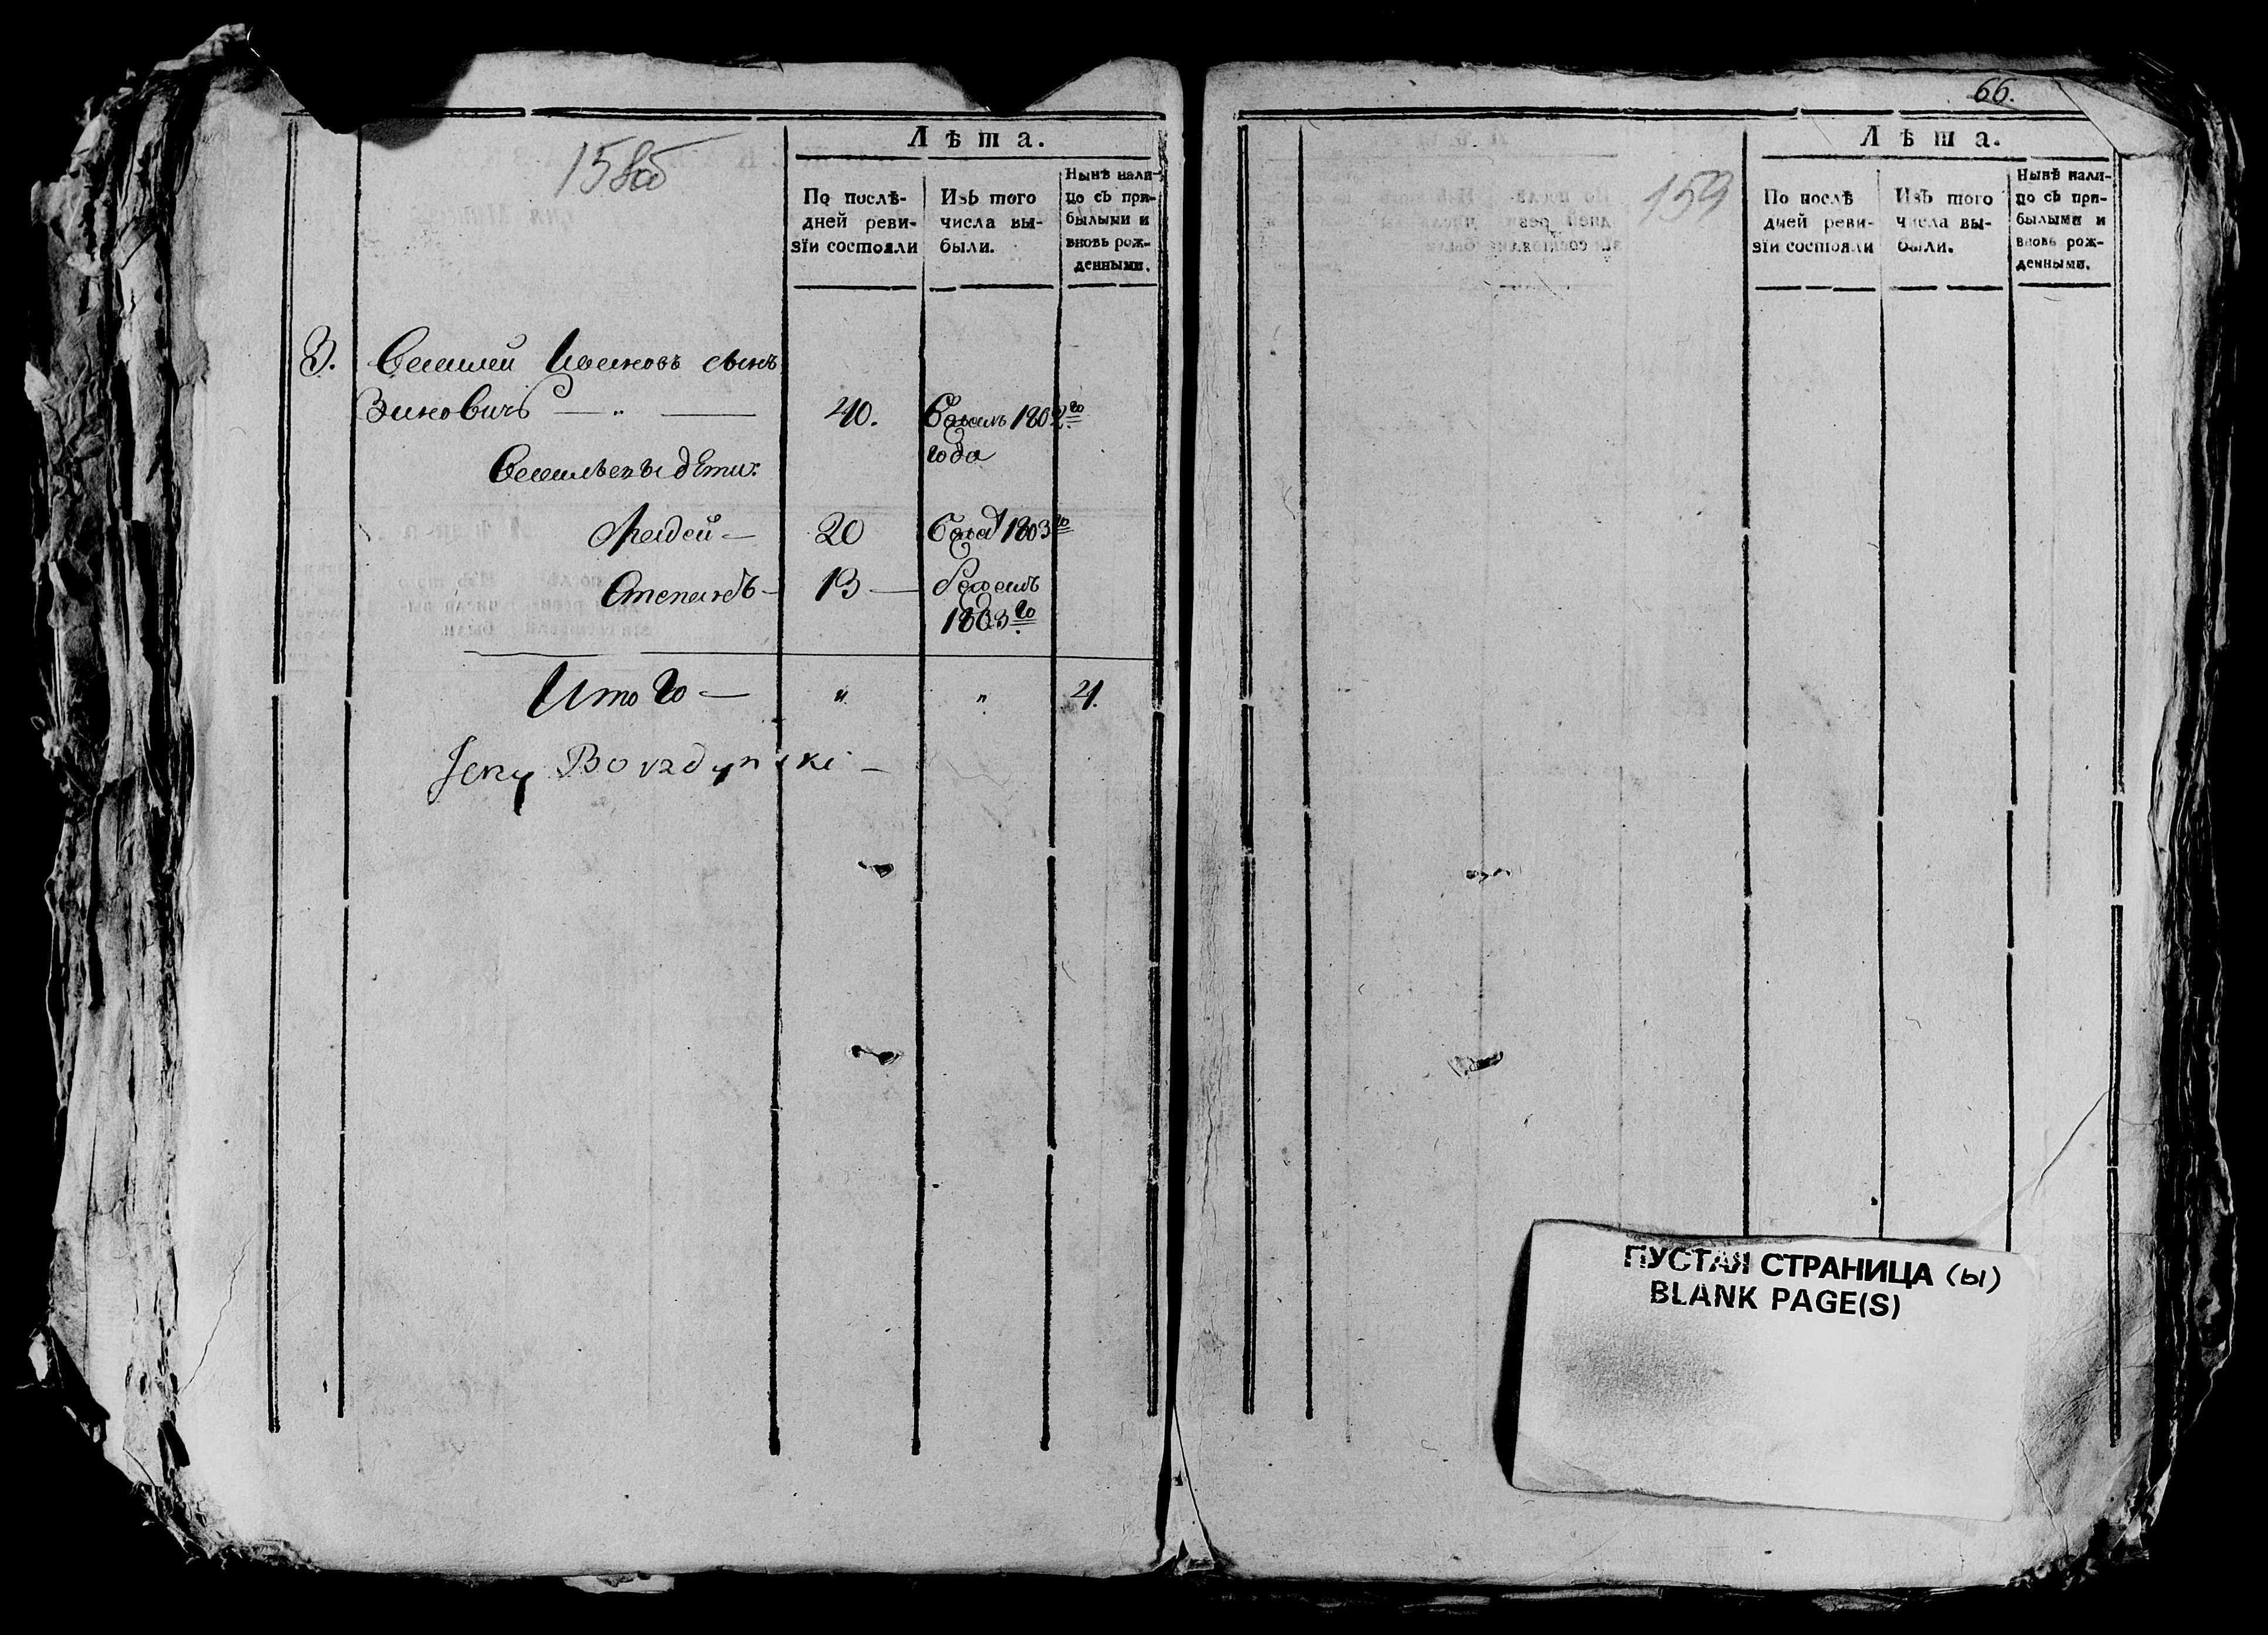 158об
Лѣта.
По послѣ-
дней реви-
зїи состояли
Изъ того
числа вы-
были.
Нынѣ нали-
цо съ при-
былыми и
вновь рож-
денными.
3. Василей Ивановъ сынъ
Зиновичъ — „ —
40.
1802го
года
Васильевы дѣти:
Фадей —
20
1803го
Степанъ —
13 —
1803го
Итого —
„
„
4.
Jerzy Bourzdyński —
66.
159
Лѣта.
По послѣ
дней реви-
зїи состояли
Изъ того
числа вы-
были.
Нынѣ нали-
цо съ при-
былыми и
вновь рож-
денными.
ПУСТАЯ СТРАНИЦА (ы)
BLANK PAGE(S)